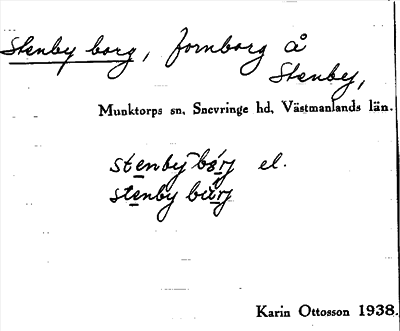 Stenby borg, fornborg å
Stenby,
Munktorps sn, Snevringe hd, Västmanlands län.
stenby bórj el.
stenby bùrj
Karin Ottosson 1938.